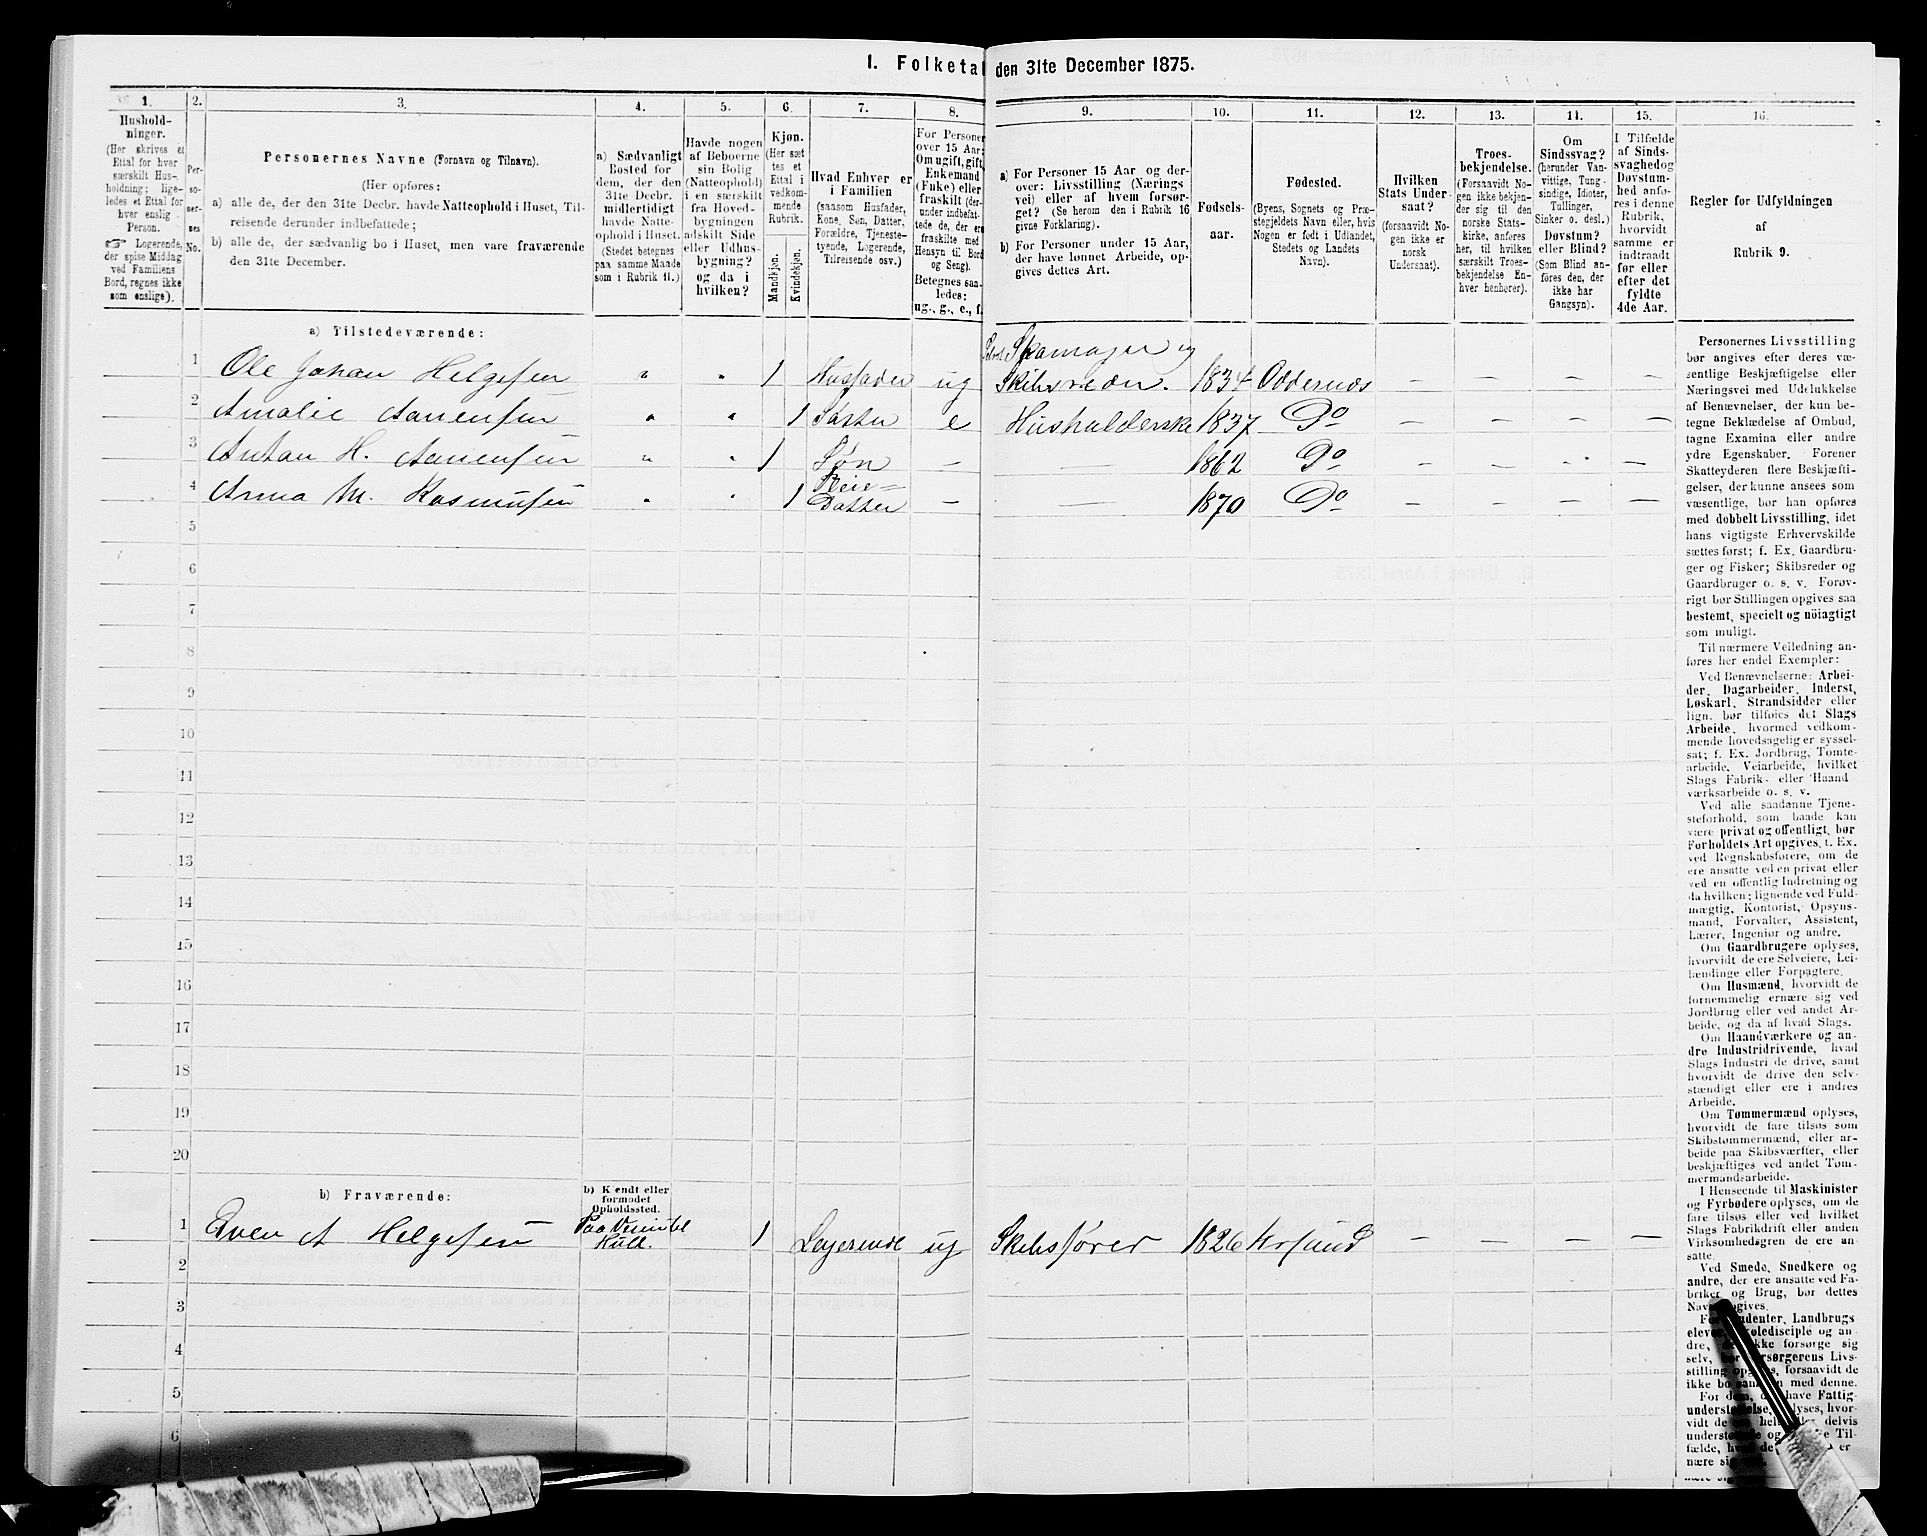 1. Folketal den 31te December 1875.
1.
Hushold-
ninger.
(Her skrives et
Ettal for hver
særskilt Hus-
holdning; lige-
ledes et Ettal for
hver enslig
Person.
☞ Logerende,
der spise Middag
ved Familiens
Bord, regnes ikke
som enslige).
2.
Per-
so-
ner-
nes
No.
3.
Personernes Navne (Fornavn og Tilnavn).
(Her opføres:
a) alle de, der den 31te Decbr. havde Natteophold i Huset, Til-
reisende derunder indbefattede;
b) alle de, der sædvanlig bo i Huset, men vare fraværende
den 31te December.
4.
a) Sædvanligt
Bosted for
dem, der den
31te Decbr.
midlertidigt
havde Natte-
ophold i Huset.
(Stedet betegnes
paa samme Maade
som i Rubrik 11.)
5.
Havde nogen
af Beboerne
sin Bolig
(Natteophold)
i en særskilt
fra Hoved-
bygningen
adskilt Side
eller Udhus-
bygning?
og da i
hvilken?
6.
Kjøn.
(Her sæt
tes et
Ettal i
vedkom-
mende
Rubrik.
Mandkjøn.
Kvindekjøn.
7.
Hvad Enhver er
i Familien
(saasom Husfader,
Kone, Søn, Datter,
Forældre, Tjeneste-
tyende, Logerende,
Tilreisende osv.)
8.
For Personer
over 15 Aar:
Om ugift, gift,
Enkemand
(Enke) eller
fraskilt (der-
under indbefat-
tede de, der ere
fraskilte med
Hensyn til Bord
og Seng).
Betegnes saa-
ledes:
ug., g., e., f.
9.
a) For Personer 15 Aar og der-
over: Livsstilling (Nærings
vei) eller af hvem forsør-
get? (Se herom den i Rubrik 16
givne Forklaring).
b) For Personer under 15 Aar,
der have lønnet Arbeide, op-
gives dettes Art.
10.
Fødsels-
aar.
11.
Fødested.
(Byens, Sognets og Præ-
stegjeldets Navn eller, hvis
Nogen er født i Udlandet,
Stedets og Landets
Navn).
12.
Hvilken
Stats Under-
saat?
(forsaavidt No-
gen ikke er
norsk
Undersaat).
13.
Troes-
bekjendelse.
(Forsaavidt No-
gen ikke bekjen-
der sig til den
norske Stats-
kirke, anføres
her, til hvilken
særskilt Troes-
bekjendelse En-
hver henhører).
14.
Om
Sindssvag?
(herunder Van-
vittige, Tung-
sindige, Idioter,
Tullinger,
Sinker o. desl.)
Døvstum?
eller Blind?
(Som Blind an-
føres den, der
ikke har
Gangsyn).
15.
I Tilfælde
af Sinds-
svaghed og
Døvstum-
hed anfø-
res i denne
Rubrik,
hvorvidt
samme er
indtraadt
før eller
efter det
fyldte
4de Aar.
16.
Regler for Udfyldningen
af
Rubrik 9.
a) Tilstedeværende:
1 Ole Johan Helgesen " " 1 Husfader ug Skomager og
Skibsreder. 1834 Oddernæs — — — —
2 Amalie Aanensen " " 1 Søster e Husholderske 1837 Do — — — —
3 Anton H. Aanensen " " 1 Søn — — 1862 Do — — — —
4 Anna M. Rasmusen " " 1 Pleie-
Datter — — 1870 Do — — — —
5
6
7
8
9
10
11
12
13
14
15
16
17
18
19
20
b) Fraværende:
b) Kjendt eller
formodet
Opholdssted.
1 Even A Helgesen Paa
Hull. 1 Logerende ug Skibsfører 1826 Krsand — — — —
2
3
4
5
6
Personernes Livsstilling
bør angives efter deres væ-
sentlige Beskjæftigelse eller
Næringsvei med Udelukkelse
af Benævnelser, der kun be-
tegne Beklædelse af Ombud,
tagne Examina eller andre
ydre Egenskaber. Forener
Skatteyderen flere Beskjæfti-
gelser, der kunne ansees som
væsentlige, bør han opføres
med dobbelt Livsstilling, idet
hans vigtigste Erhvervskilde
sættes først; f. Ex. Gaardbru-
ger og Fisker; Skibsreder og
Gaardbruger o. s. v. Forøv-
rigt bør Stillingen opgives saa
bestemt, specielt og nöiagtigt
som muligt.
Til nærmere Veiledning an-
føres her endel Exempler:
Ved Benævnelserne: Arbei-
der, Dagarbeider, Inderst,
Løskarl, Strandsidder eller
lign. bør tilføies det Slags
Arbeide, hvormed vedkom-
mende hovedsagelig er syssel-
sat; f. Ex. Jordbrug, Tomte-
arbeide, Veiarbeide, hvilket
Slags Fabrik- eller Haand-
værksarbeide o. s. v.
Ved alle saadanne Tjene-
steforhold, som baade kan
være privat og offentligt, bør
Forholdets Art opgives, f. Ex.
ved Regnskabsførere, om de
ere ansatte ved en privat eller
ved en offentlig Indretning og
da hvilken; lignende ved Fuld-
mægtig, Kontorist, Opsyns-
mand, Forvalter, Assistent,
Lærer, Ingeniør og andre.
Om Gaardbrugere oplyses,
hvorvidt de ere Selveiere, Lei-
lændinge eller Forpagtere.
Om Husmænd, hvorvidt de
fornemmelig ernære sig ved
Jordbrug eller ved andet Ar-
beide, og da af hvad Slags.
Om Haandværkere og an-
dre Industridrivende, hvad
Slags Industri de drive, samt
hvorvidt de drive den selv-
stændigt eller ere i andres
Arbeide.
Om Tømmermænd oplyses,
hvorvidt de fare tilsøs som
Skibstømmermænd, eller ar-
beide paa Skibsværfter, eller
beskjæftiges ved andet Tøm-
mermandsarbeide.
I Henseende til Maskinister
og Fyrbødere oplyses, om de
fare tilsøs eller ved hvilket
Slags Fabrikdrift eller anden
Virksomhedsgren de ere an-
satte.
Ved Smede, Snedkere og
andre, der ere ansatte ved Fa-
briker og Brug, bør dettes